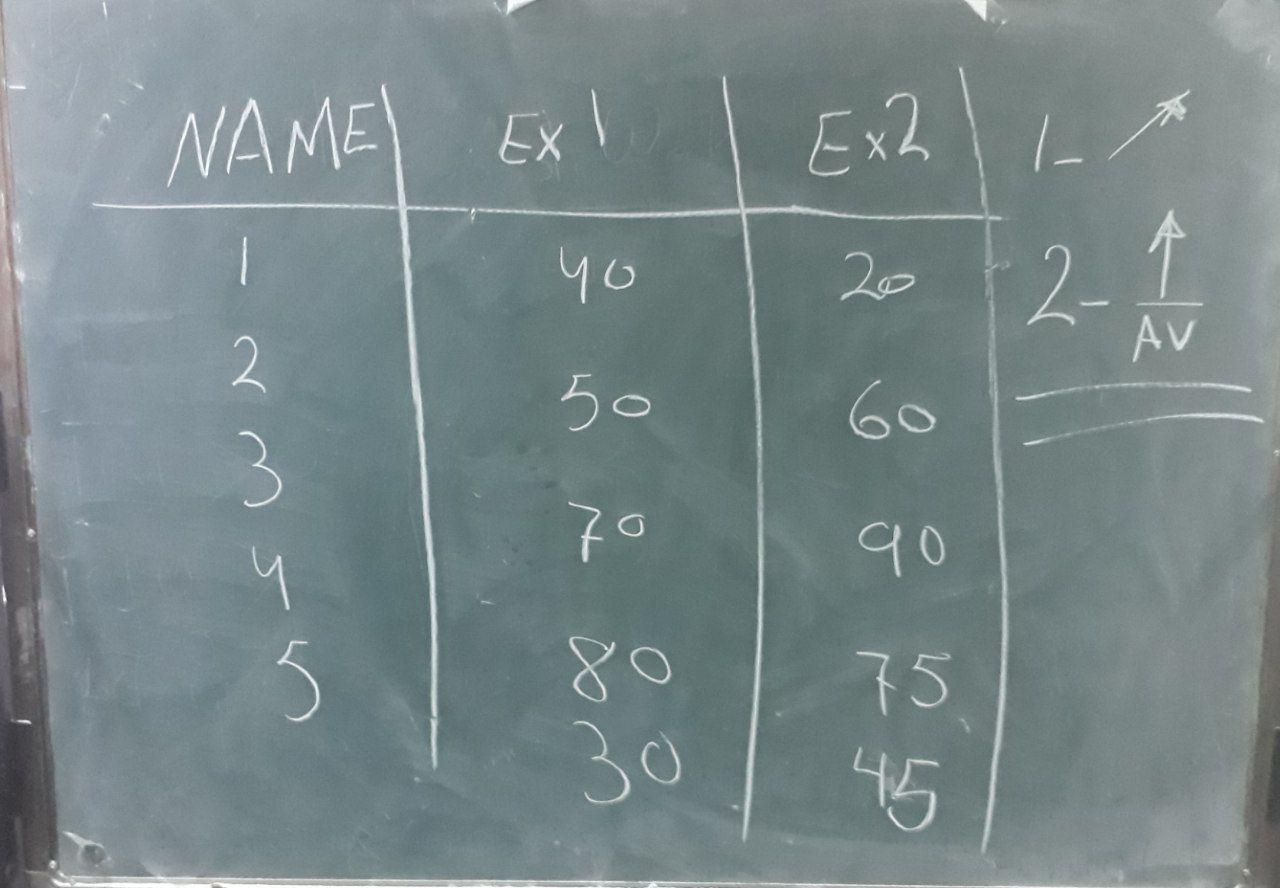 NAME Ex1 Ex2 1- ↗
1 40 20 2- ↑
AV
2 50 60
3 70 90
4 80 75
5 30 45